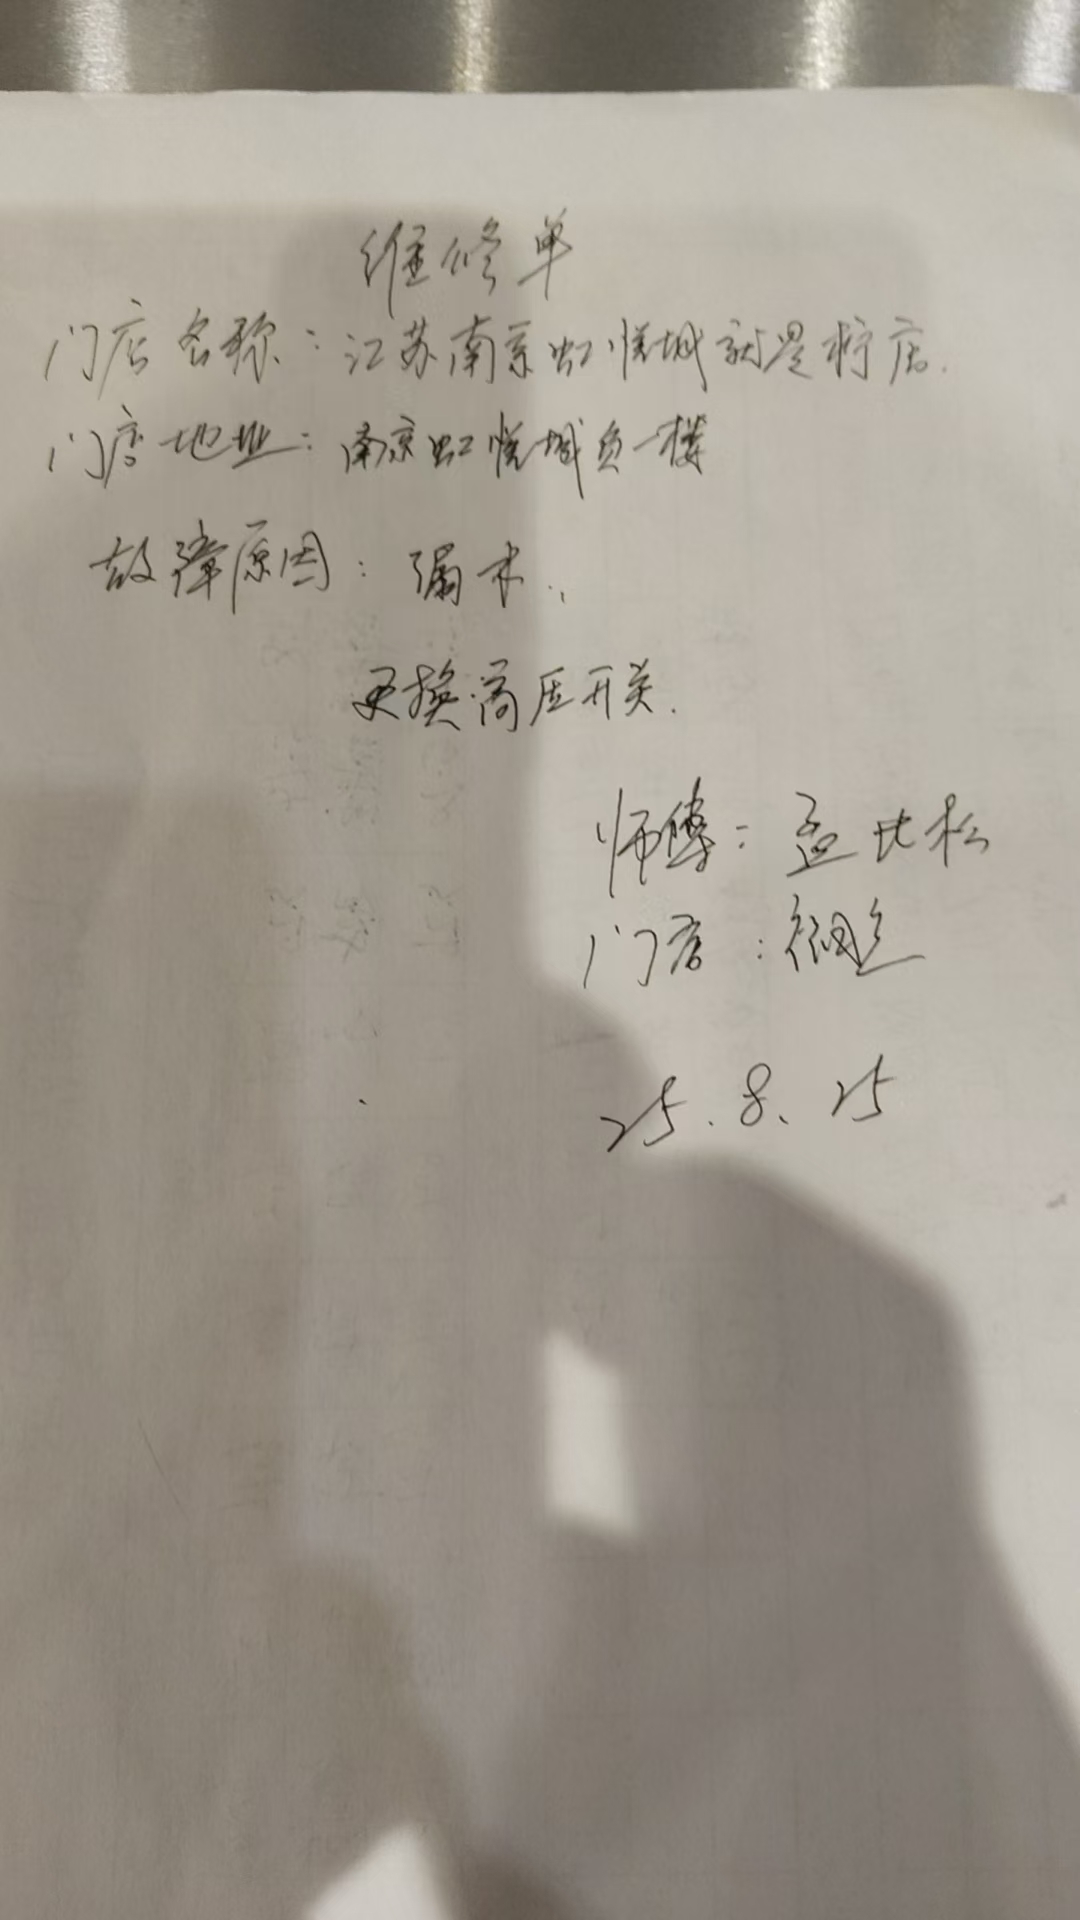 维修单
门店名称：江苏南京虹悦城就是柠店.
门店地址：南京虹悦城负一楼
故障原因：漏水.
更换高压开关.
师傅：孟比松
门店：
25.8.25